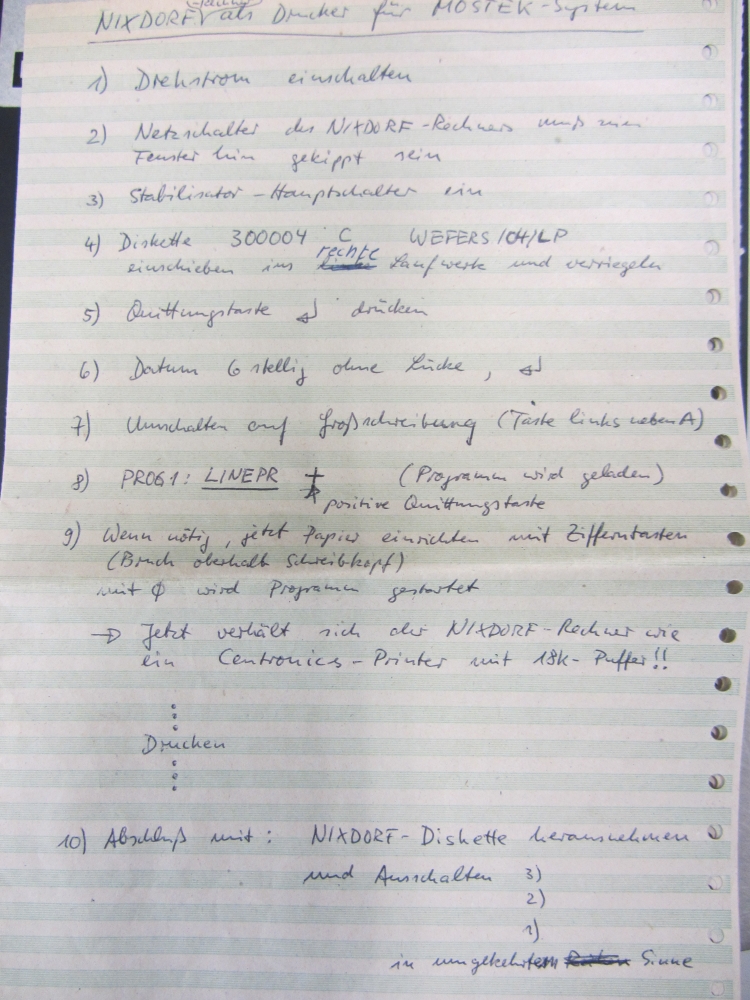 NIXDORF als Drucker für MOSTEK-System
1) Drehstrom einschalten
2) Netzschalter des NIXDORF-Rechners muß zum
Fenster hin gekippt sein
3) Stabilisator-Hauptschalter ein
4) Diskette 300004 C WEFERS/04/LP
rechte
einschieben ins Laufwerk und verriegeln
5) Quittungstaste ↲ drücken
6) Datum 6 stellig ohne Lücke, ↲
7) Umschalten auf Großschreibung (Taste links neben A)
8) PROG1: LINEPR + (Programm wird geladen)
positive Quittungstaste
9) Wenn nötig, jetzt Papier einrichten mit Zifferntasten
(Bruch oberhalb Schreibkopf)
mit Ø wird Programm gestartet
→ Jetzt verhält sich der NIXDORF-Rechner wie
ein Centronics-Printer mit 18k-Puffer!!
Drucken
10) Abschluß mit: NIXDORF-Diskette herausnehmen
und Ausschalten 3)
2)
1)
in umgekehrtem Sinne